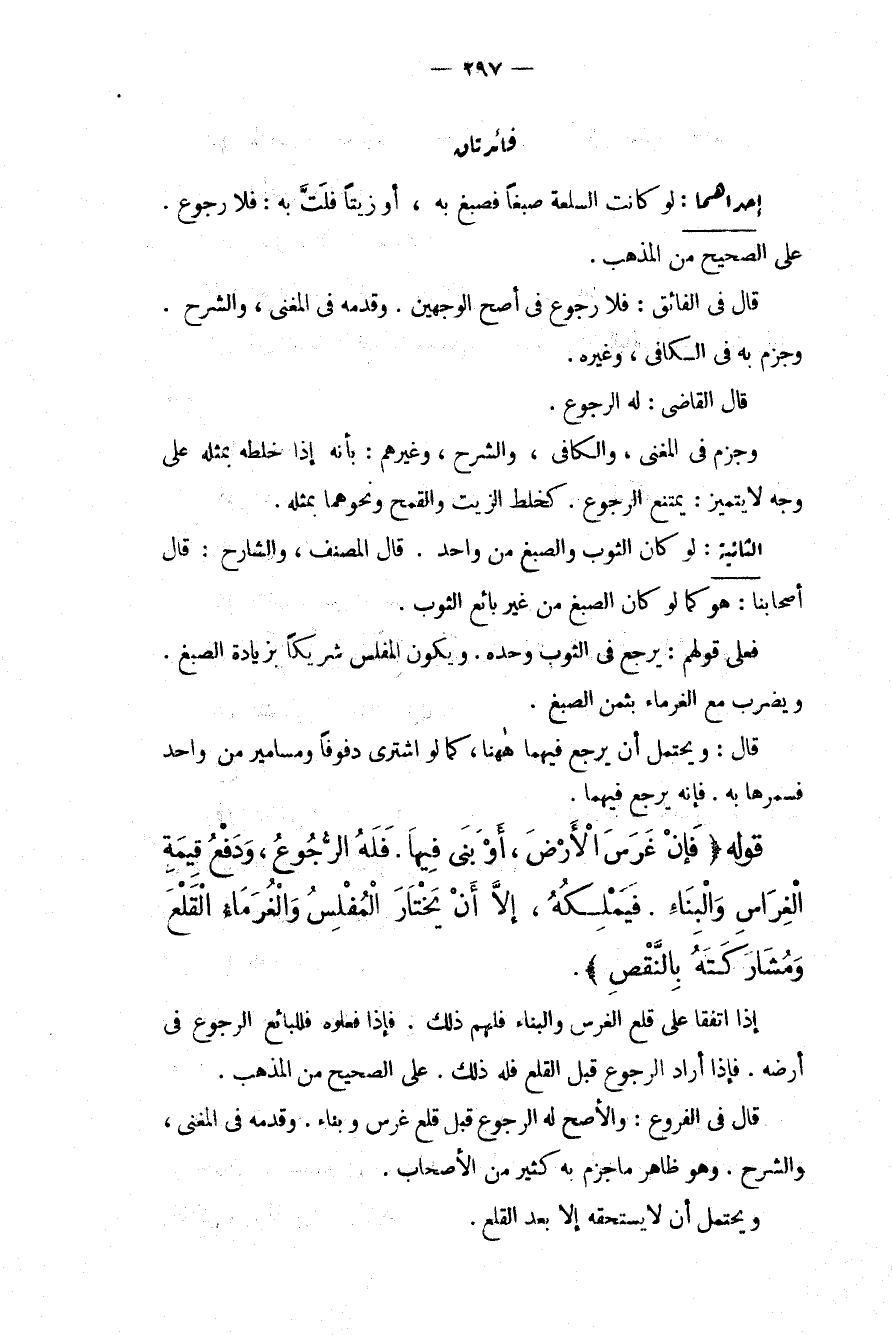 — ٢٩٧ —
فائدتان
إحداهما : لو كانت السلعة صبغاً فصبغ به ، أو زيتاً فلَتَّ به : فلا رجوع .
على الصحيح من المذهب .
قال فى الفائق : فلا رجوع فى أصح الوجهين . وقدمه فى المغنى ، والشرح .
وجزم به فى الكافى ، وغيره .
قال القاضى : له الرجوع .
وجزم فى المغنى ، والكافى ، والشرح ، وغيرهم : بأنه إذا خلطه بمثله على
وجه لايتميز : يمتنع الرجوع . كخلط الزيت والقمح ونحوهما بمثله .
الثانية : لو كان الثوب والصبغ من واحد . قال المصنف ، والشارح : قال
أصحابنا : هو كما لو كان الصبغ من غير بائع الثوب .
فعلى قولهم : يرجع فى الثوب وحده . ويكون المفلس شريكاً بزيادة الصبغ .
ويضرب مع الغرماء بثمن الصبغ .
قال : ويحتمل أن يرجع فيهما هٰهنا ، كما لو اشترى دفوفاً ومسامير من واحد
فسمرها به . فإنه يرجع فيهما .
قوله ﴿ فَإِنْ غَرَسَ الْأَرْضَ ، أَوْ بَنَى فِيهَا . فَلَهُ الرُّجُوعُ ، وَدَفْعُ قِيمَةِ
الْغِرَاسِ وَالْبِنَاءِ . فَيَمْلِكُهُ ، إلاَّ أَنْ يَخْتَارَ الْمُفْلِسُ وَالْغُرَمَاءُ الْقَلْعَ
وَمُشَارَكَتَهُ بِالنَّقْصِ ﴾ .
إذا اتفقا على قلع الغرس والبناء فلهم ذلك . فإذا فعلوه فللبائع الرجوع فى
أرضه . فإذا أراد الرجوع قبل القلع فله ذلك . على الصحيح من المذهب .
قال فى الفروع : والأصح له الرجوع قبل قلع غرس وبناء . وقدمه فى المغنى ،
والشرح . وهو ظاهر ماجزم به كثير من الأصحاب .
ويحتمل أن لايستحقه إلا بعد القلع .